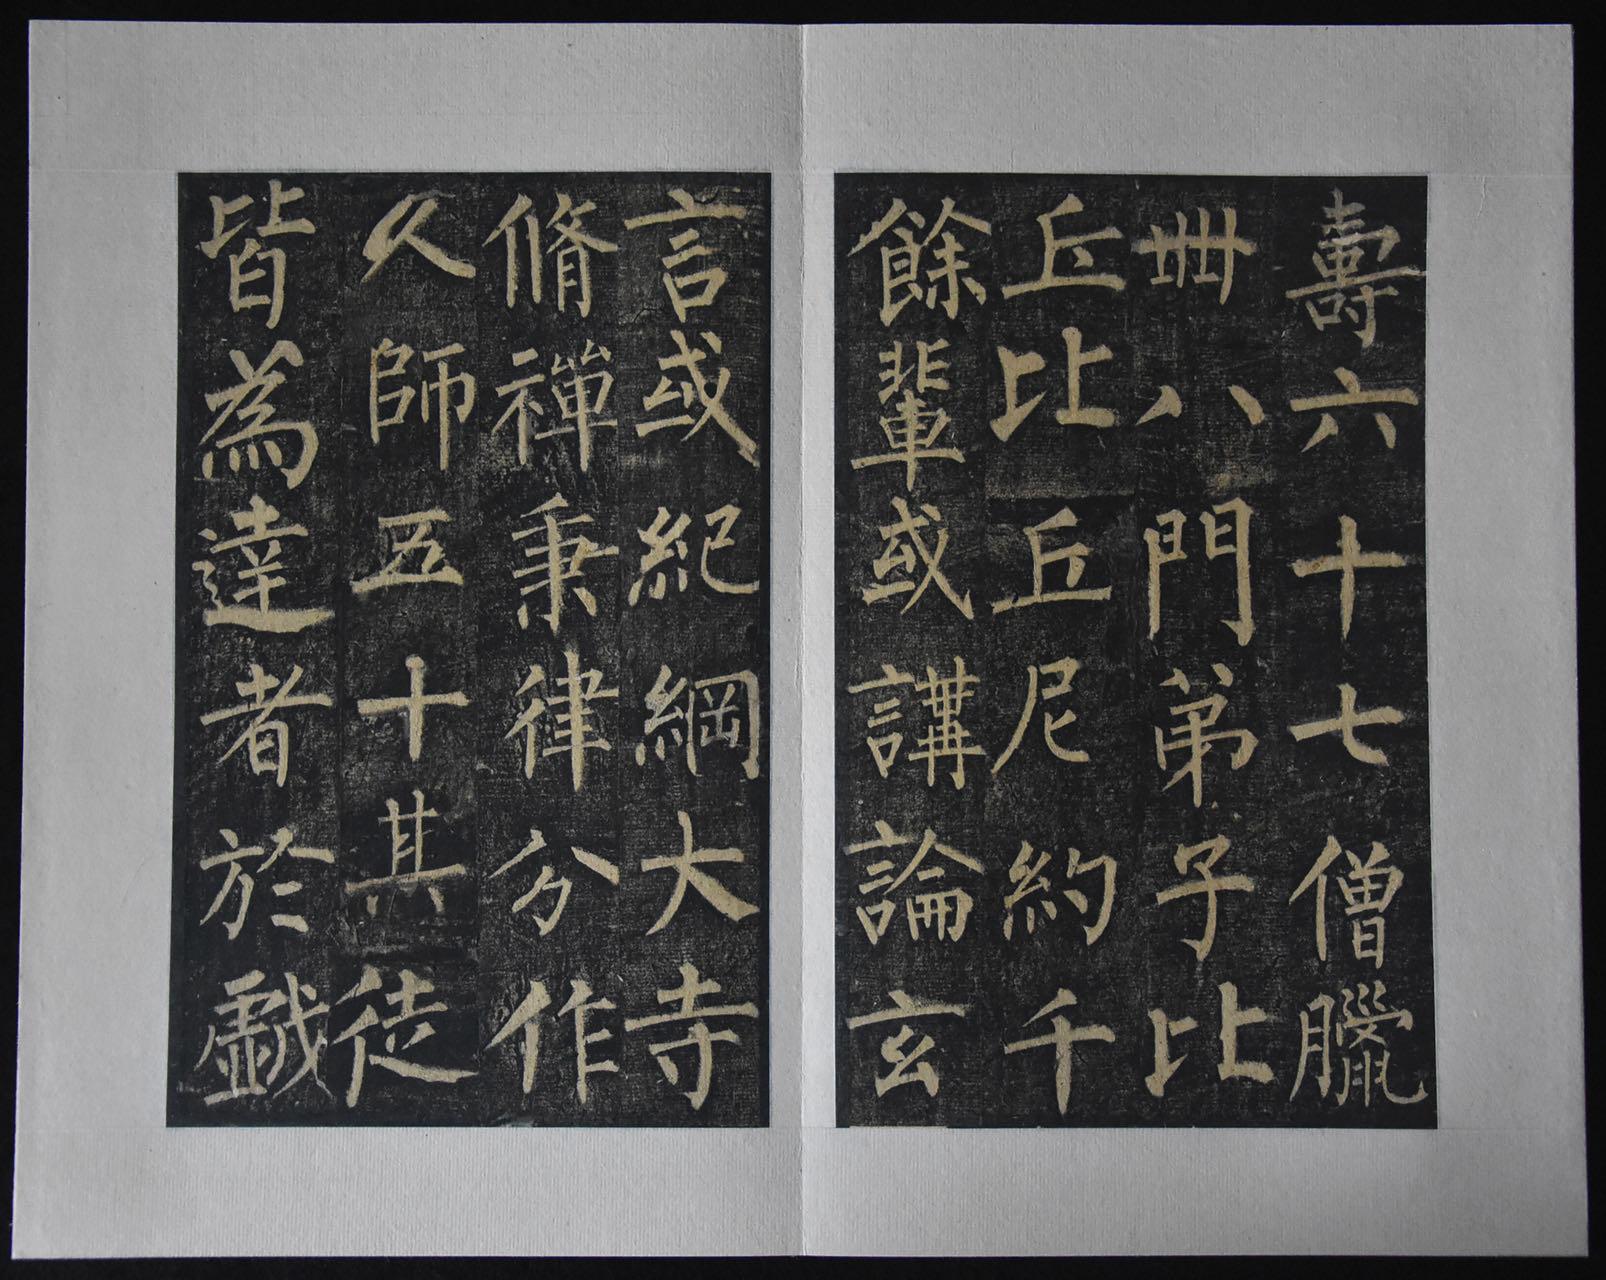 壽六十七僧臘
卌八門弟子比
丘比丘尼約千
餘輩或講論玄
言或紀綱大寺
脩禪秉律分作
人師五十其徒
皆為達者於戲